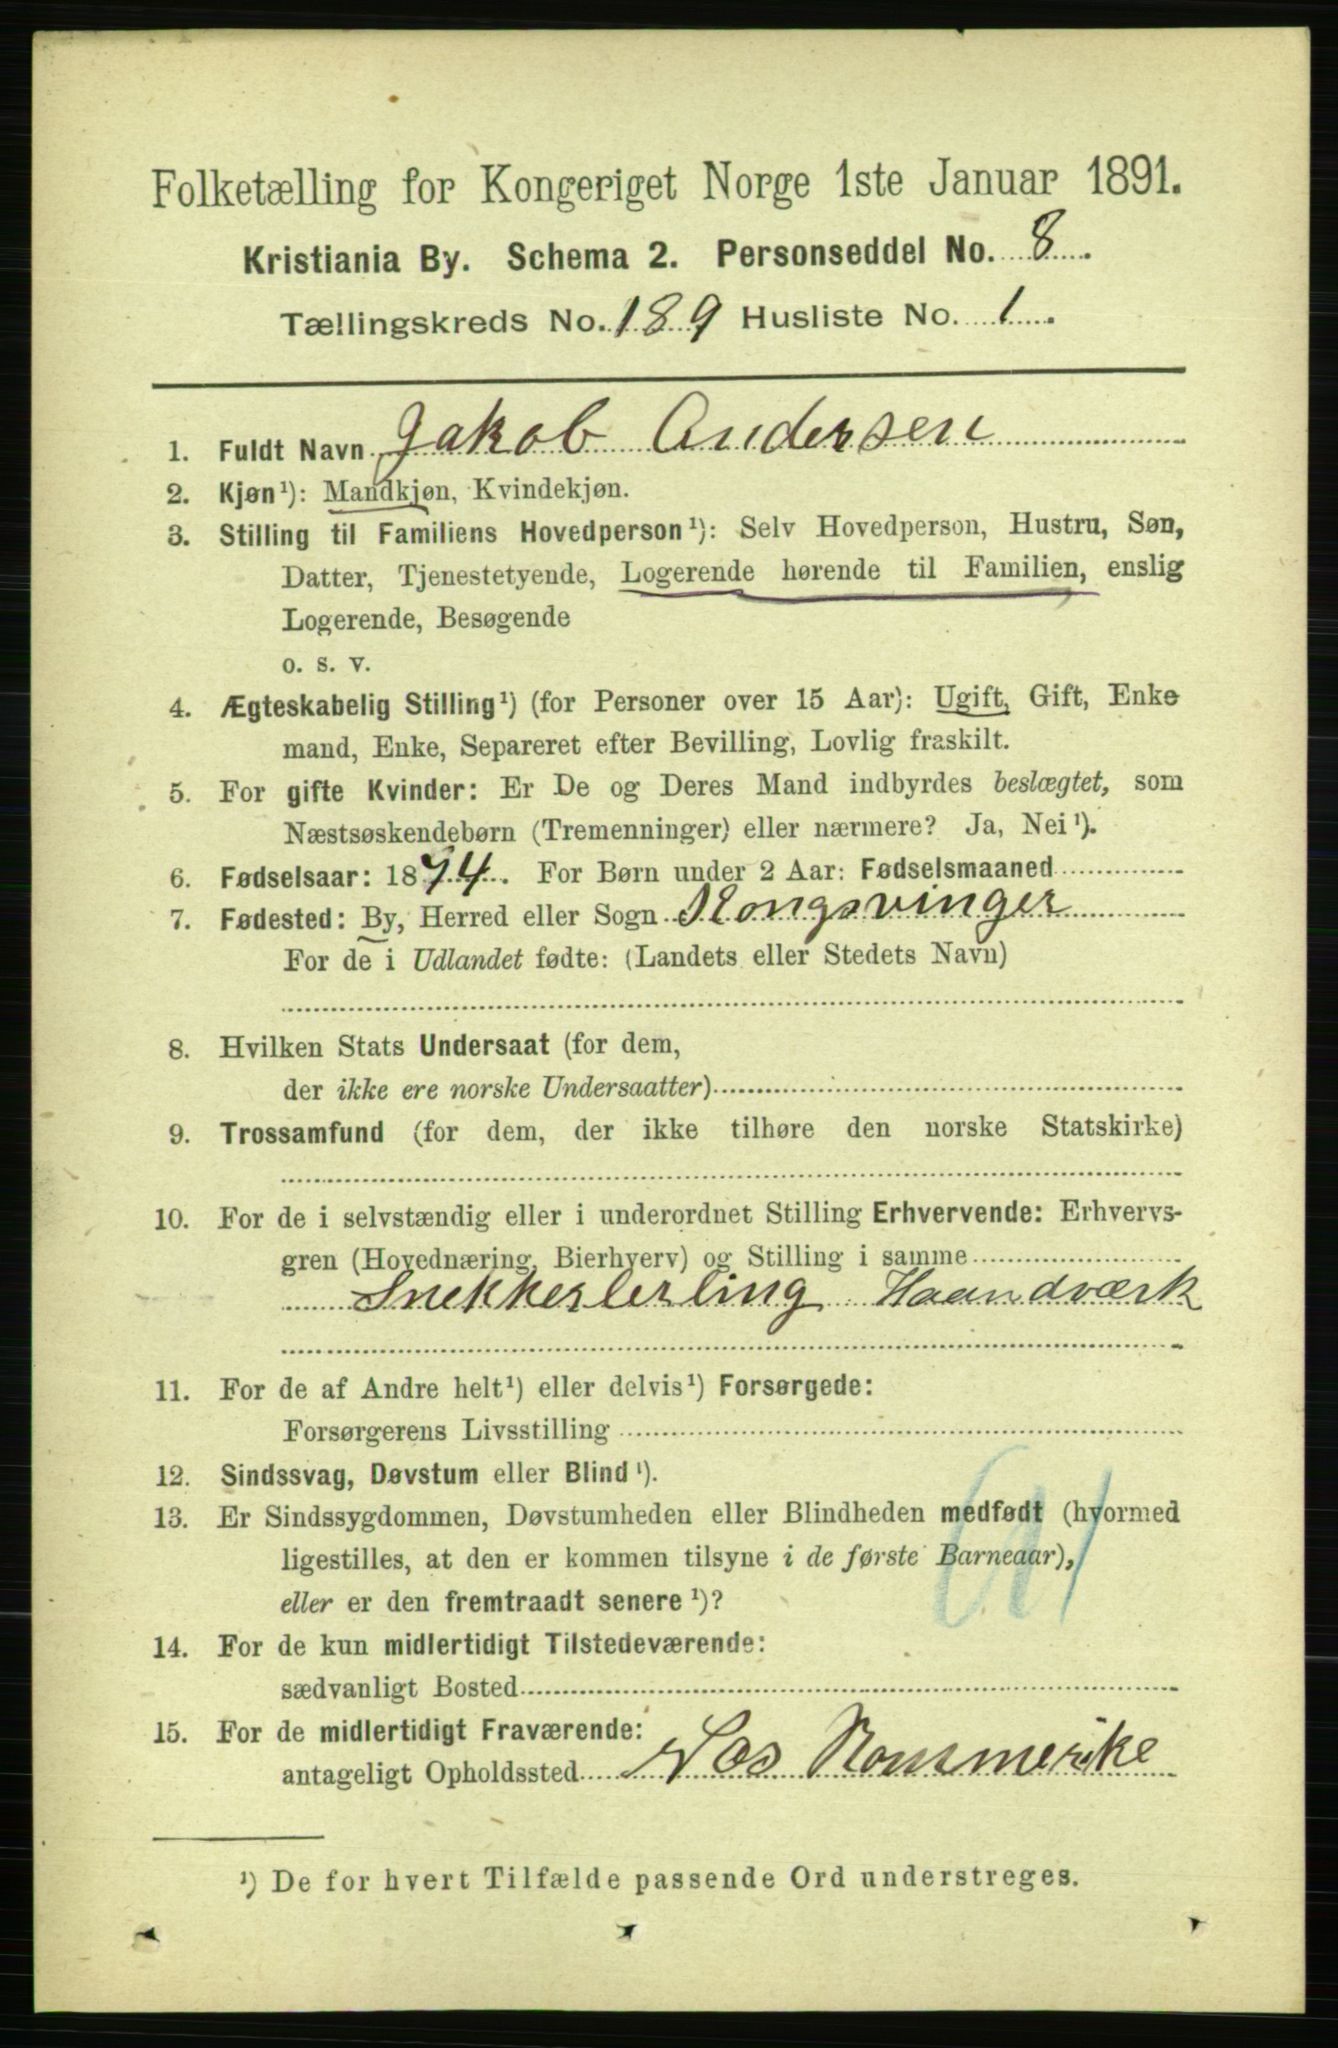 Folketælling for Kongeriget Norge 1ste Januar 1891.
Kristiania By. Schema 2. Personseddel No. 8.
Tællingskreds No. 189 Husliste No. 1.
1. Fuldt Navn Jakob Andersen
2. Kjøn¹): Mandkjøn, Kvindekjøn.
3. Stilling til Familiens Hovedperson¹): Selv Hovedperson, Hustru, Søn,
Datter, Tjenestetyende, Logerende hørende til Familien, enslig
Logerende, Besøgende
o. s. v.
4. Ægteskabelig Stilling¹) (for Personer over 15 Aar): Ugift, Gift, Enke
mand, Enke, Separeret efter Bevilling, Lovlig fraskilt.
5. For gifte Kvinder: Er De og Deres Mand indbyrdes beslægtet, som
Næstsøskendebørn (Tremenninger) eller nærmere? Ja, Nei¹).
6. Fødselsaar: 1874. For Børn under 2 Aar: Fødselsmaaned
7. Fødested: By, Herred eller Sogn Kongsvinger
For de i Udlandet fødte: (Landets eller Stedets Navn)
8. Hvilken Stats Undersaat (for dem,
der ikke ere norske Undersaatter)
9. Trossamfund (for dem, der ikke tilhøre den norske Statskirke)
10. For de i selvstændig eller i underordnet Stilling Erhvervende: Erhvervs-
gren (Hovednæring, Bierhverv) og Stilling i samme
Snekkerlerling Haandværk
11. For de af Andre helt¹) eller delvis¹) Forsørgede:
Forsørgerens Livsstilling
12. Sindssvag, Døvstum eller Blind¹).
13. Er Sindssygdommen, Døvstumheden eller Blindheden medfødt (hvormed
ligestilles, at den er kommen tilsyne i de første Barneaar),
eller er den fremtraadt senere¹)?
14. For de kun midlertidigt Tilstedeværende:
sædvanligt Bosted
15. For de midlertidigt Fraværende:
antageligt Opholdssted Næs Rommerike
¹) De for hvert Tilfælde passende Ord understreges.